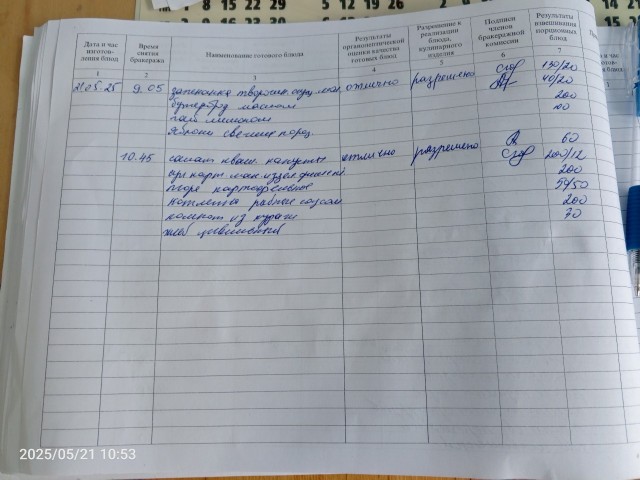 8 15 22 29
5 12 19 26
Дата и час изготов-ления блюд
Время снятия бракеража
Наименование готового блюда
Результаты органолептической оценки качества готовых блюд
Разрешение к реализации блюда, кулинарного изделия
Подписи членов бракеражной комиссии
Результаты взвешивания порционных блюд
1 2 3 4 5 6 7
21.05.25 9.05 запеканка творожн. отлично разрешено 150/20
бутерброд маслом 40/20
чай с лимоном 200
яблоки свежие порц.
10.45 салат кваш. капусты отлично разрешено 60
200/12
пюре картофельное 200
котлета рыбная соусом 50/50
компот из кураги 200
хлеб 70
2025/05/21 10:53